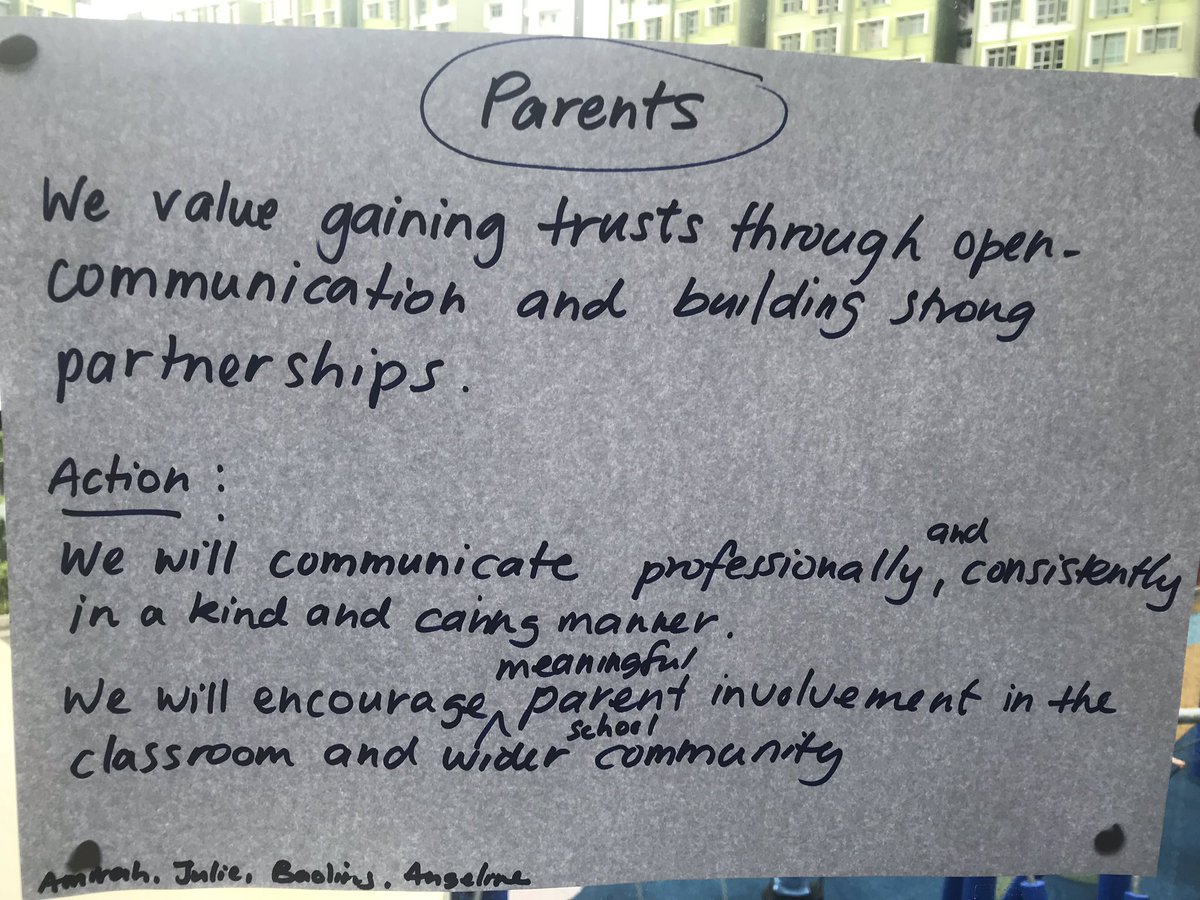 Parents
We value gaining trusts through open-
communication and building strong
partnerships.
Action :
We will communicate professionally, and consistently
in a kind and caring manner.
We will encourage meaningful parent involvement in the
classroom and wider school community
Amirah, Julie, Baoling, Angeline